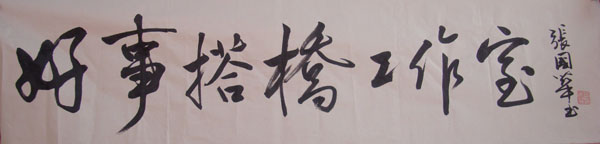 好事搭橋工作室
張國華书